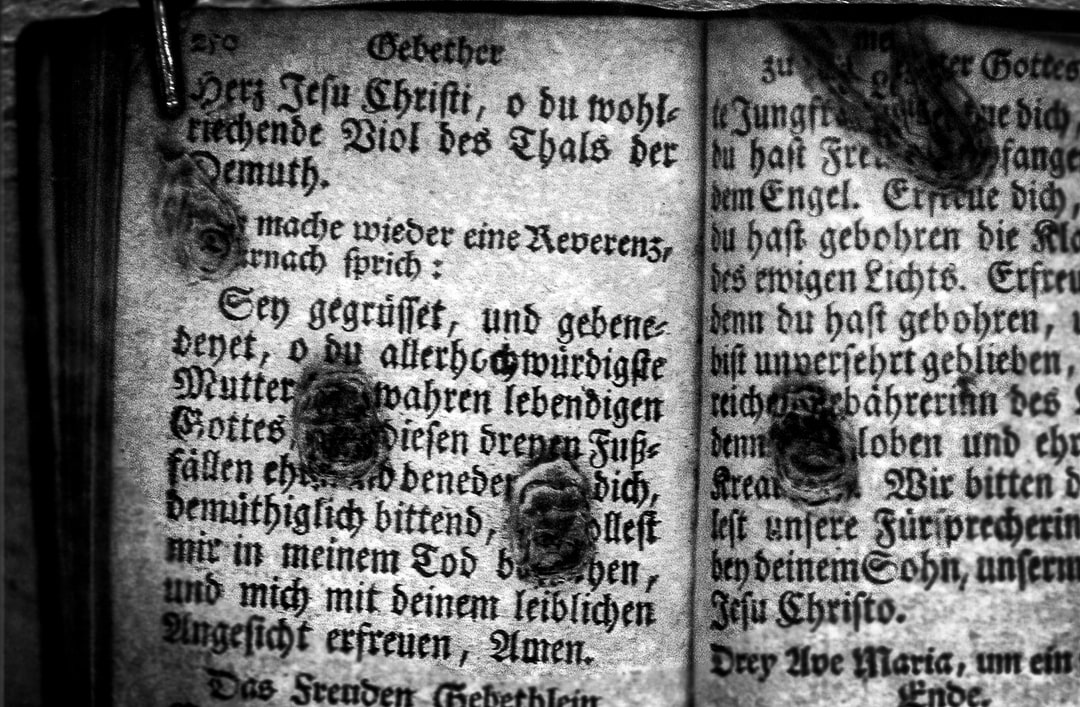 250 Gebether
Herz Jesu Christi, o du wohl-
riechende Viol des Thals der
Demuth.
mache wieder eine Reverenz,
darnach sprich:
Sey gegrüsset, und gebene-
deyet, o du allerhochwürdigste
Mutter wahren lebendigen
Gottes, diesen dreyen Fuß-
fällen dich,
demüthiglich bittend,
mir in meinem Tod
und mich mit deinem leiblichen
Angesicht erfreuen, Amen.
Das Freuden Gebethlein
zu Gottes
te Jungfr dich,
du hast
dem Engel. Erfreue dich,
du hast gebohren die
des ewigen Lichts.
denn du hast gebohren,
bist unversehrt geblieben,
bährerinn des
denn loben und
Wir bitten
lest unsere Fürsprecherin
bey deinem Sohn,
Jesu Christo.
Drey Ave Maria, um ein
Ende.